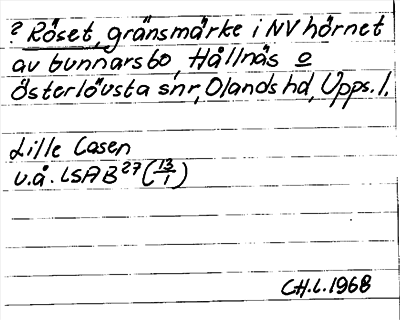 ? Röset, gränsmärke i NV hörnet
av Gunnarsbo, Hållnäs o
Österlövsta snr, Olands hd, Upps. l.
Lille Casen
u.å. LSA B27 (13/1)
CH.L. 1968